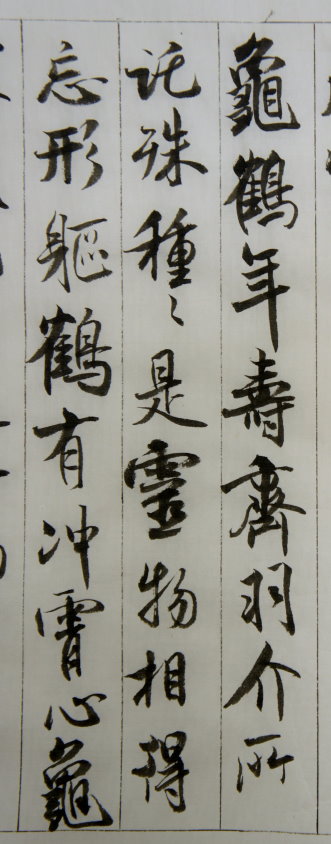 龜鶴年壽齊羽介所
託殊種〻是靈物相得
忘形軀鶴有冲霄心龜